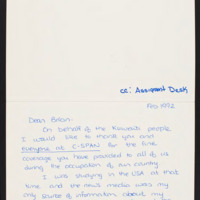 cc: Assignment Desk
Feb 1992
Dear Brian-
On behalf of the Kuwaiti people
I would like to thank you and
everyone at C-SPAN for the fine
coverage you have provided to all of us
during the occupation of our country
I was studying in the USA at that
time and the news media was my
only source of information about my